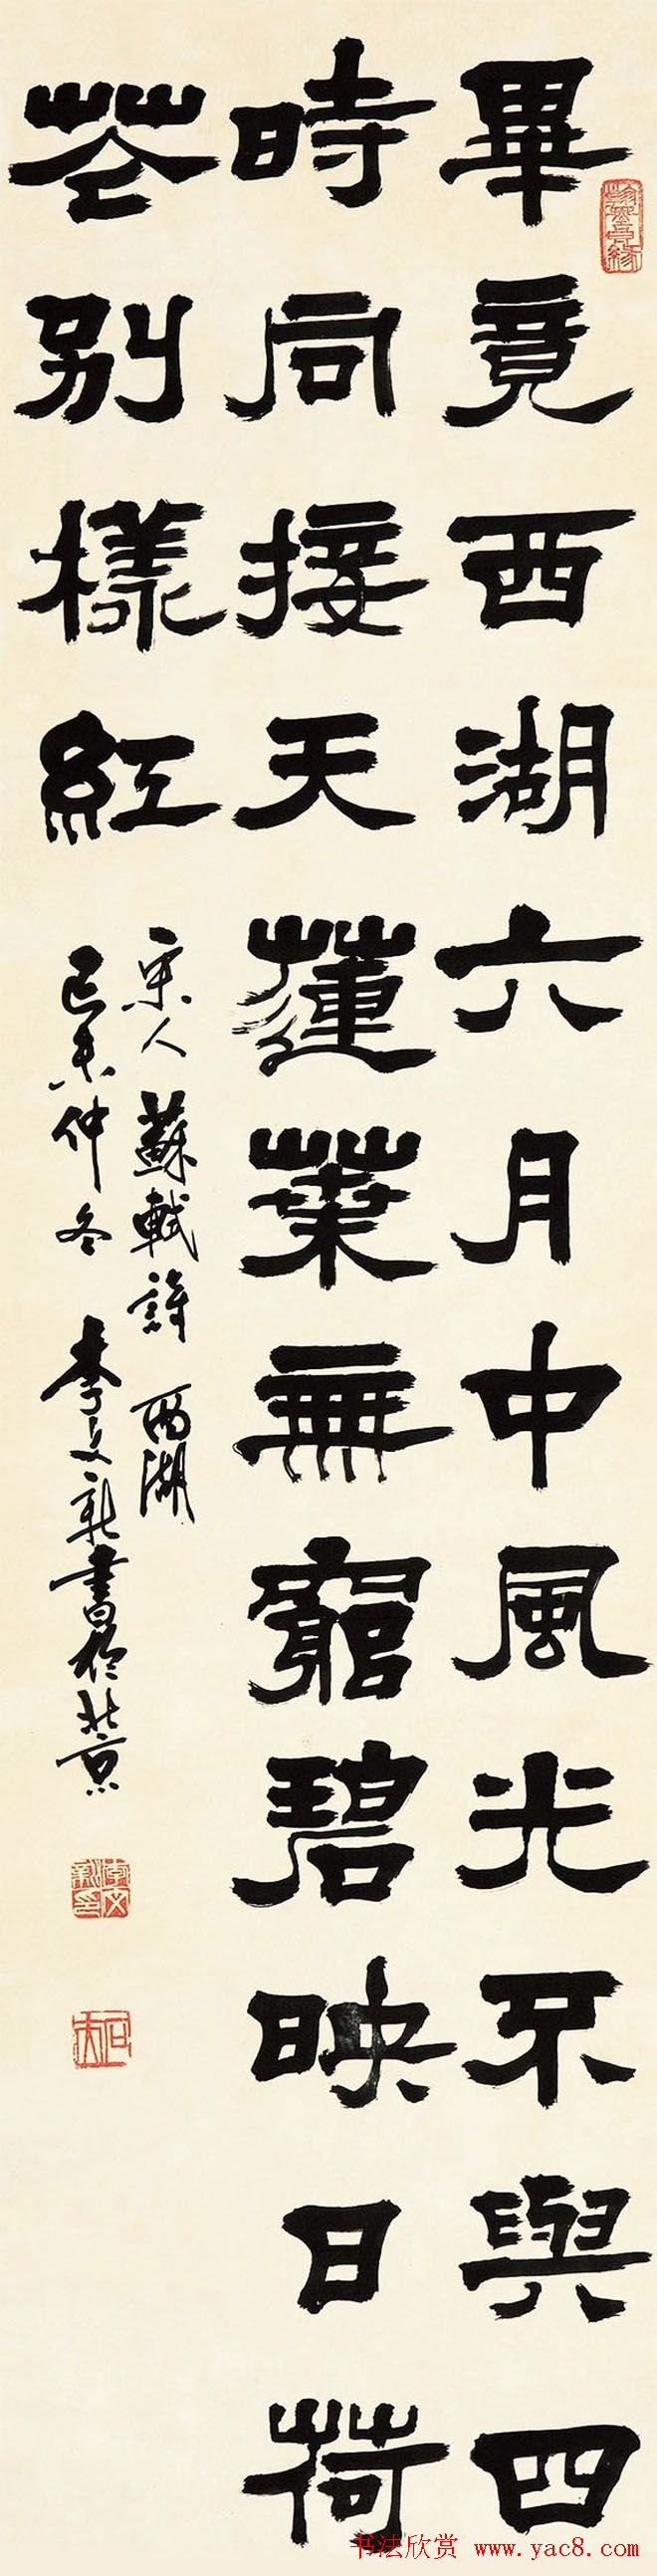 畢竟西湖六月中風光不與四
時同接天蓮葉無窮碧映日荷
花別樣紅
宋人蘇軾詩西湖
己未仲冬李文新書於北京
李文新印
书法欣赏 www.yac8.com